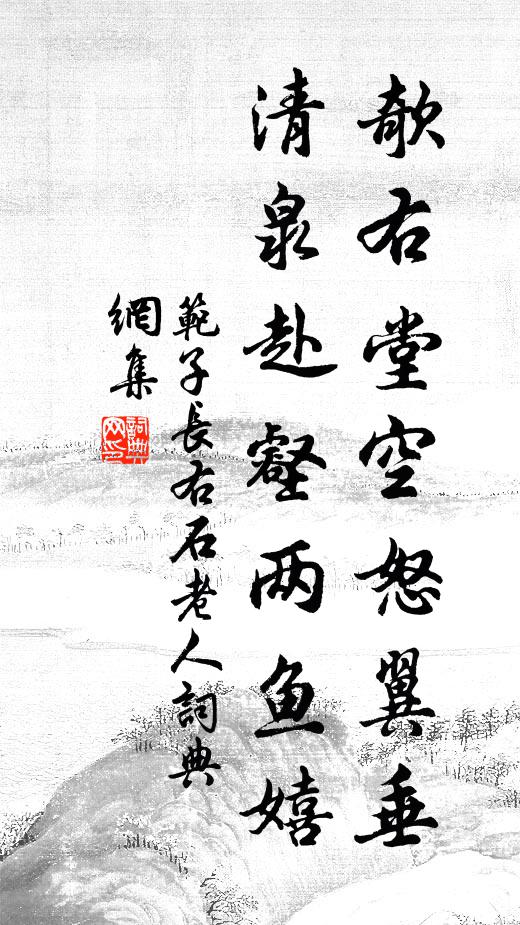 欹右堂空怒翼垂
清泉赴壑两鱼嬉
範子長右石老人詞典
網集
詞典